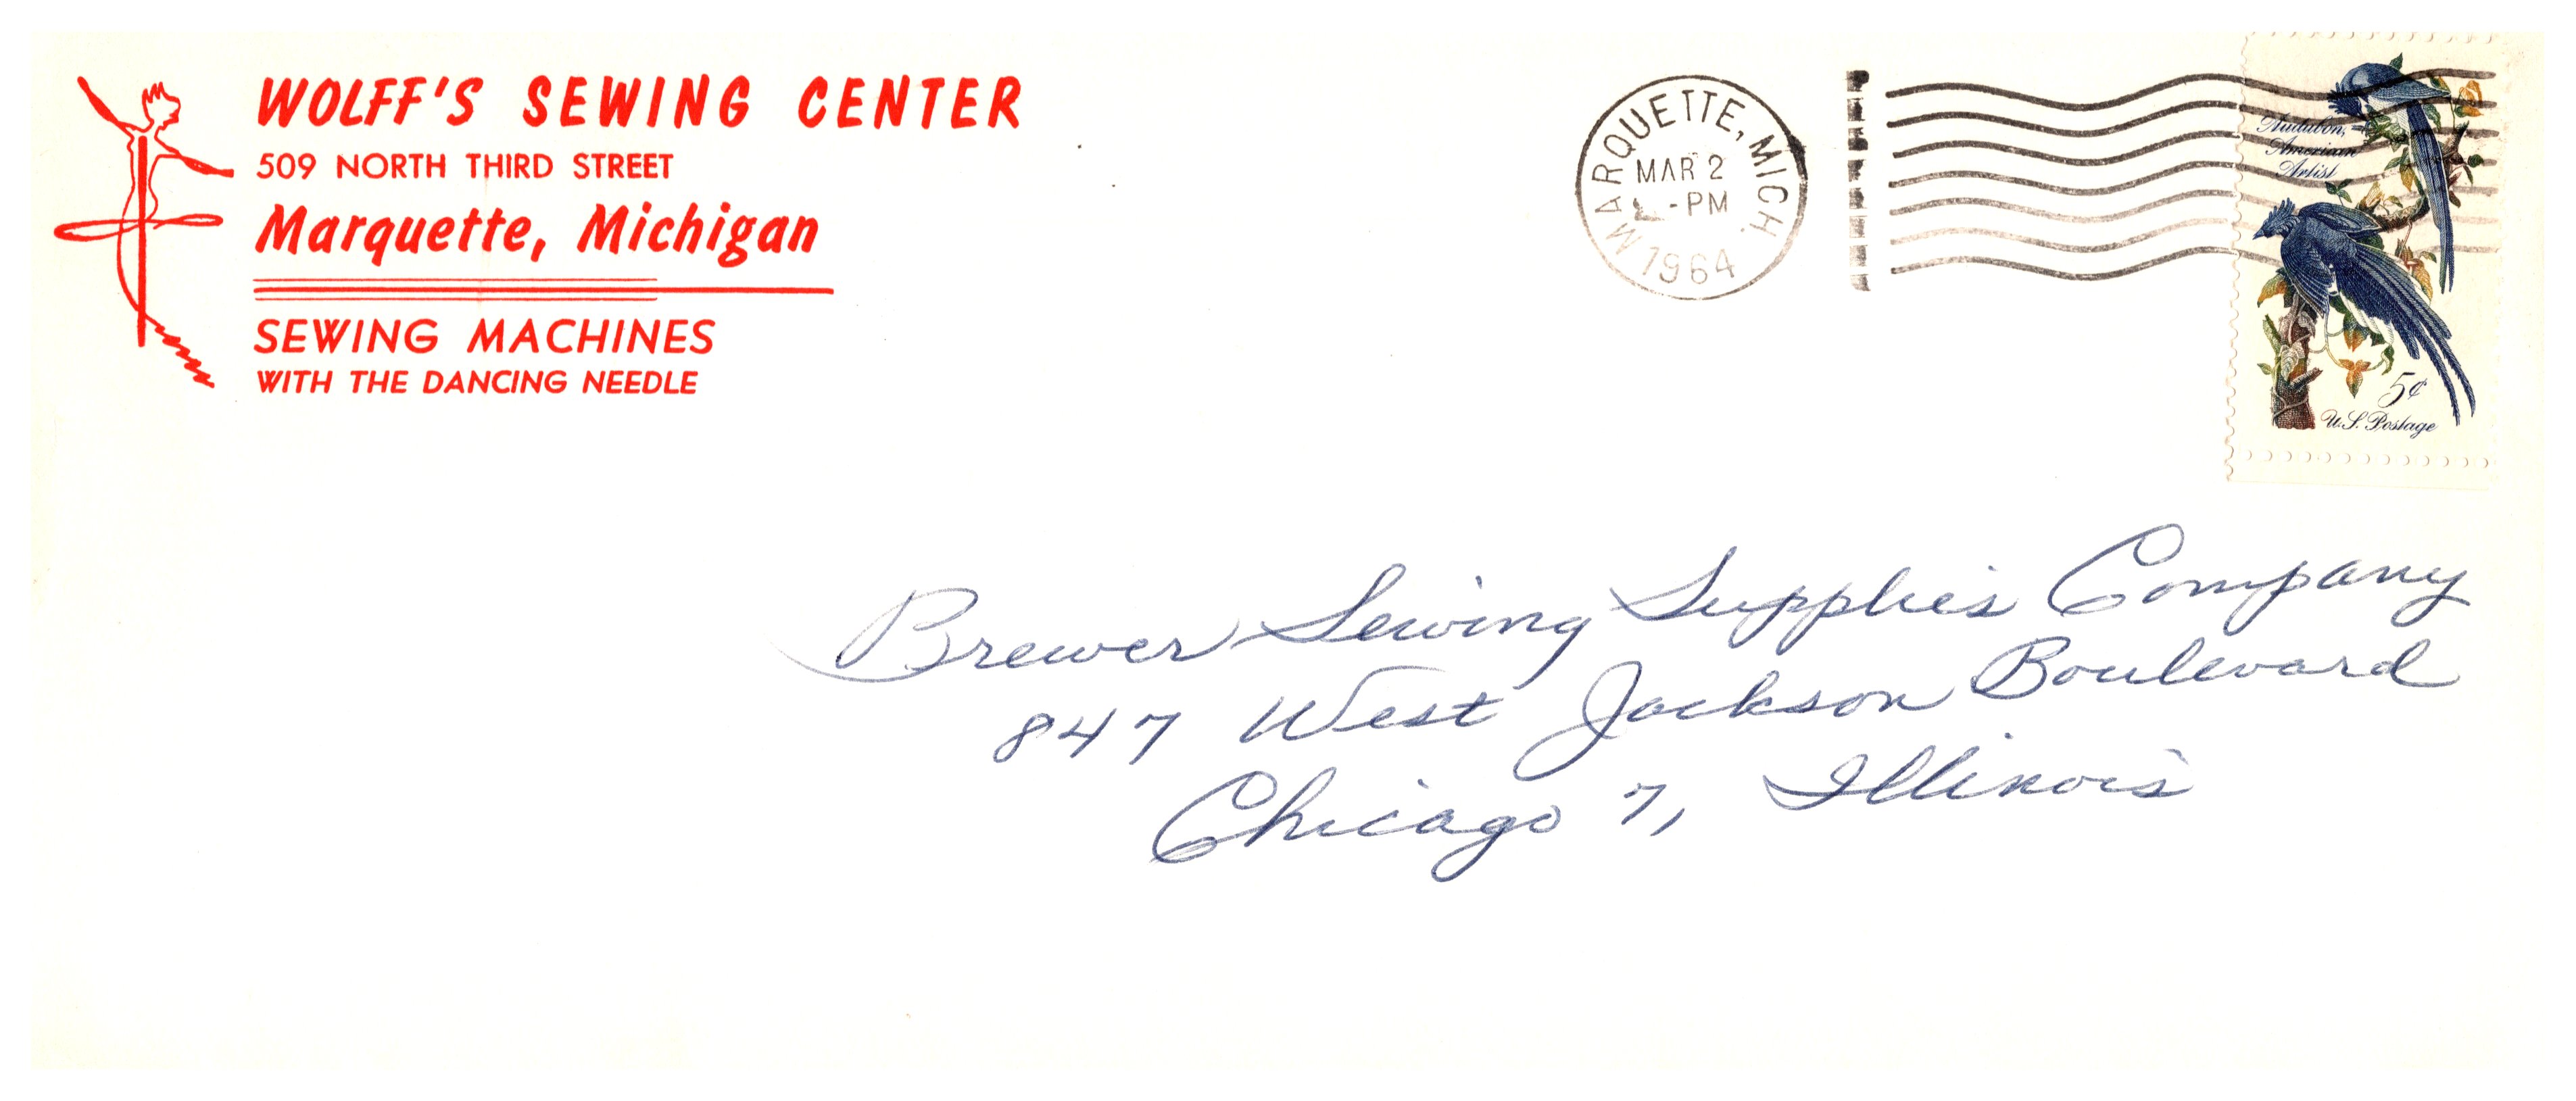 WOLFF'S SEWING CENTER
509 NORTH THIRD STREET
Marquette, Michigan
SEWING MACHINES
WITH THE DANCING NEEDLE
MARQUETTE, MICH.
MAR 2
-PM
1964
Audubon,
American
Artist
5¢
U.S. Postage
Brewer Sewing Supplies Company
847 West Jackson Boulevard
Chicago 7, Illinois